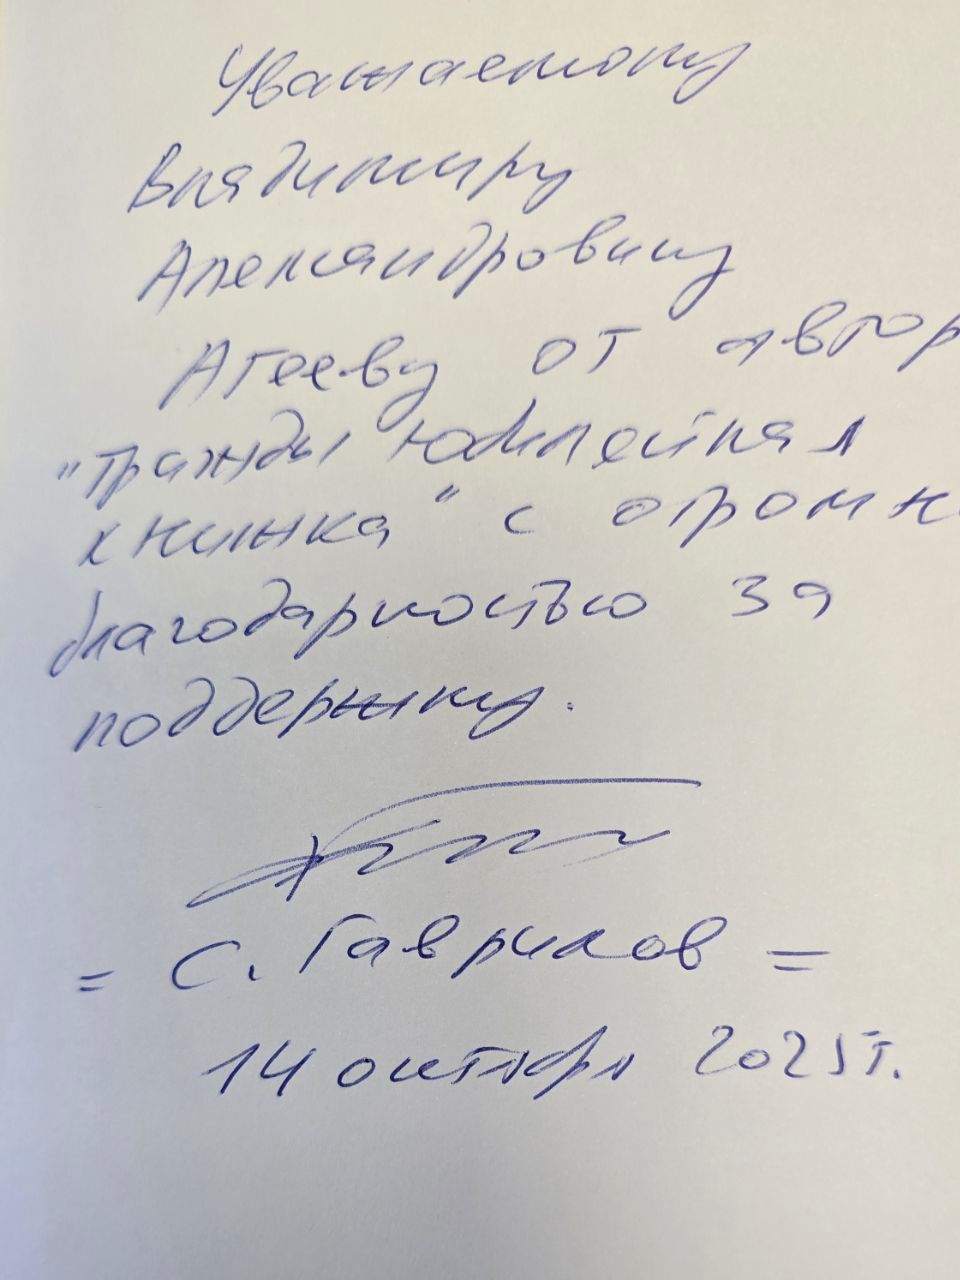 Уважаемому
Владимиру
Александровичу
Агееву от автор
"Трижды юбилейная
книжка" с огромн
благодарностью за
поддержку.
= С. Гаврилов =
14 октября 2025г.